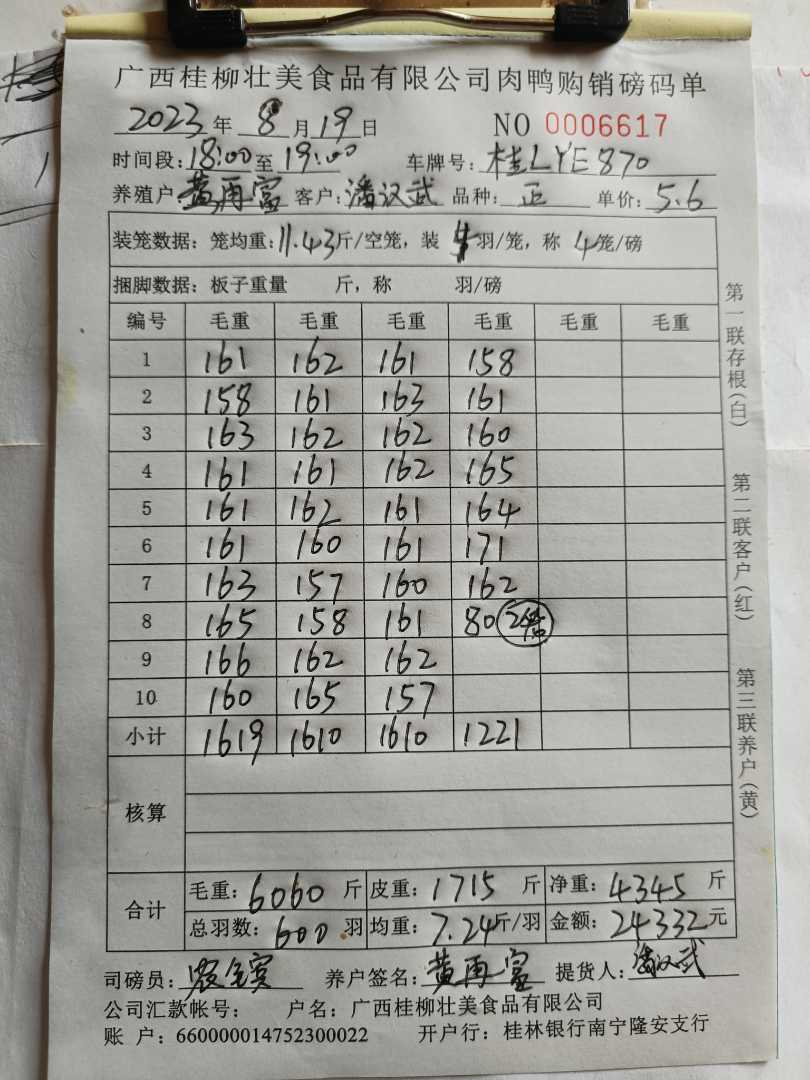 广西桂柳壮美食品有限公司肉鸭购销磅码单
2023年 8月19日 NO 0006617
时间段:18:00至19:00 车牌号:桂LYE870
养殖户 黄再富 客户:潘汉武 品种:正 单价:5.6
装笼数据:笼均重:11.43斤/空笼,装 4羽/笼,称 4笼/磅
捆脚数据:板子重量 斤,称 羽/磅
编号 毛重 毛重 毛重 毛重 毛重 毛重
1 161 162 161 158
2 158 161 163 161
3 163 162 162 160
4 161 161 162 165
5 161 162 161 164
6 161 160 161 171
7 163 157 160 162
8 165 158 161 80
9 166 162 162
10 160 165 157
小计 1619 1610 1610 1221
核算
合计 毛重:6060斤 皮重:1715斤 净重:4345斤
总羽数:600羽 均重:7.24斤/羽 金额:24332元
司磅员: 养户签名:黄再富 提货人:潘汉武
公司汇款帐号: 户名:广西桂柳壮美食品有限公司
账 户:660000014752300022 开户行:桂林银行南宁隆安支行
第一联存根(白)
第二联客户(红)
第三联养户(黄)